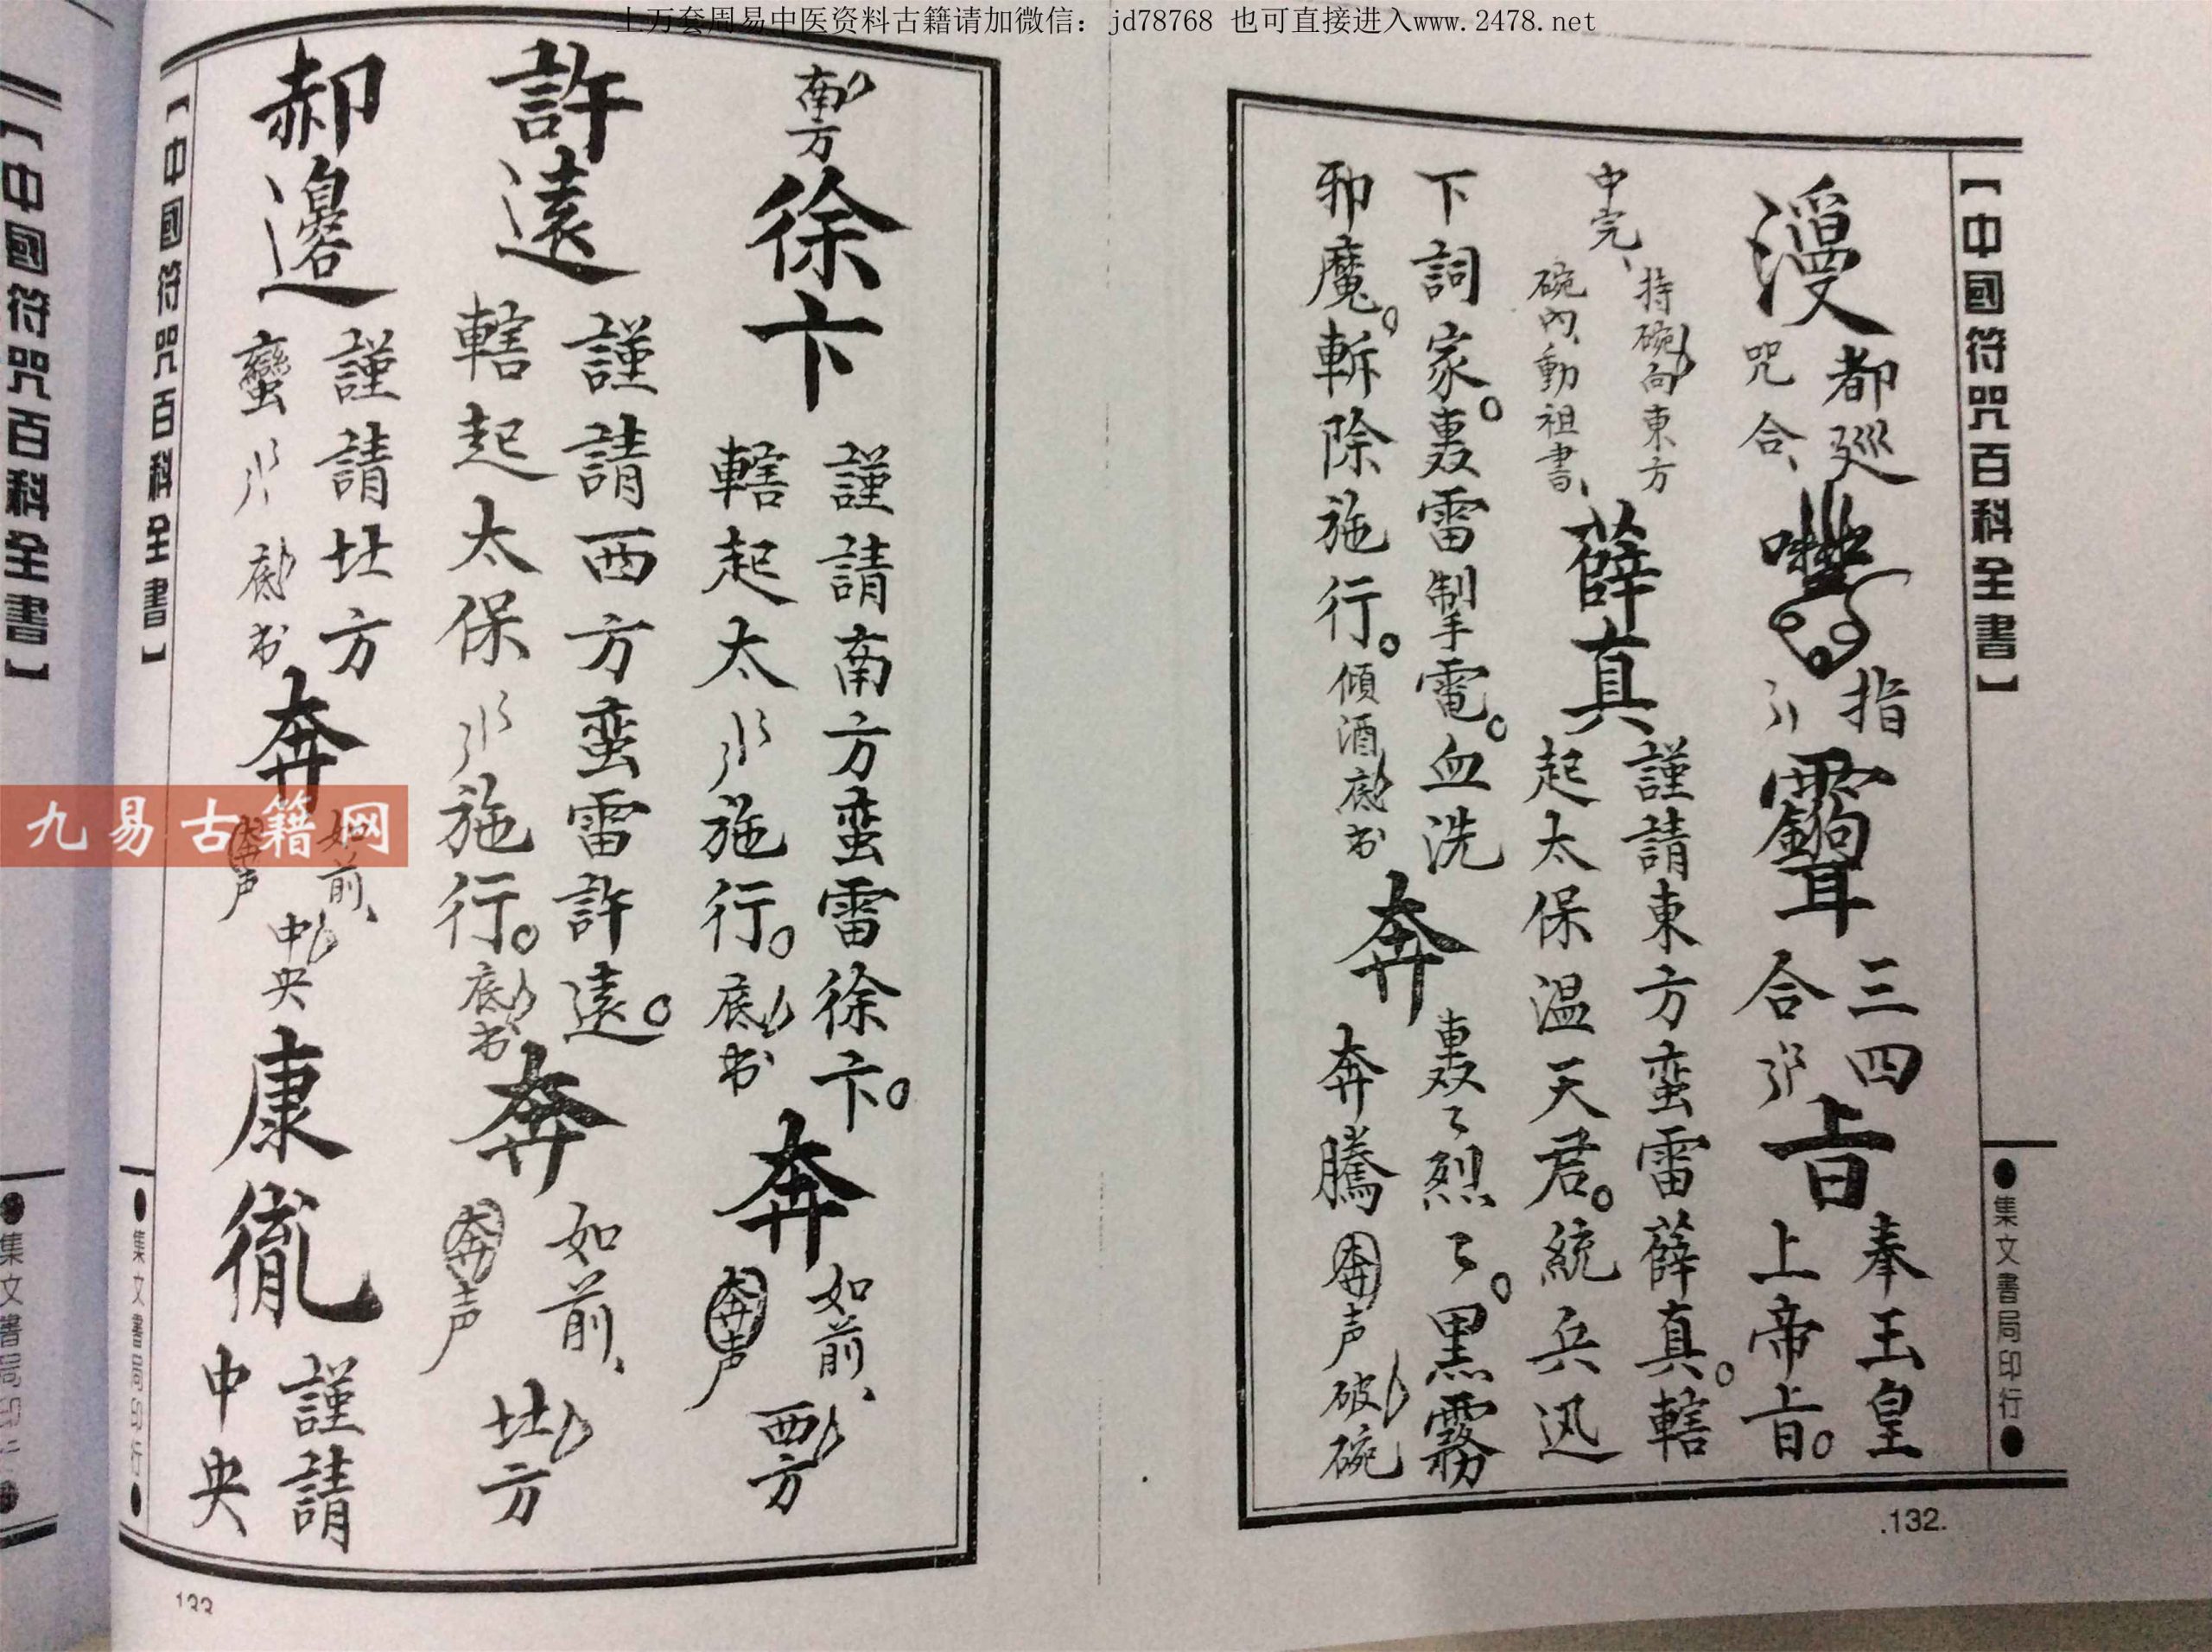 上万套周易中医资料古籍请加微信：jd78768 也可直接进入www.2478.net
【中國符咒百科全書】
●集文書局印行●
都廵
咒合、
指
三四
合
奉玉皇
上帝旨。
中完、
持碗向東方
碗內、動祖書、
薛真
謹請東方蛮雷薛真。轄
起太保温天君。統兵迅
下詞家。轟雷掣電。血洗
邪魔。斬除施行。傾酒底书
奔
轟々烈々。黑霧
奔騰
奔声
破碗
.132.
南方
徐卞
謹請南方蛮雷徐卞。
轄起太
施行。底书
奔
如前、
奔声
西方
許遠
謹請西方蛮雷許遠。
轄起太保
施行。底书
奔
如前、
奔声
北方
郝邊
謹請北方
蠻
底书
奔
如前、
奔声
中央
康
謹請
中央
【中國符咒百科全書】
●集文書局印行●
133
九易古籍网
【中國符咒百科全書】
●集文書局印